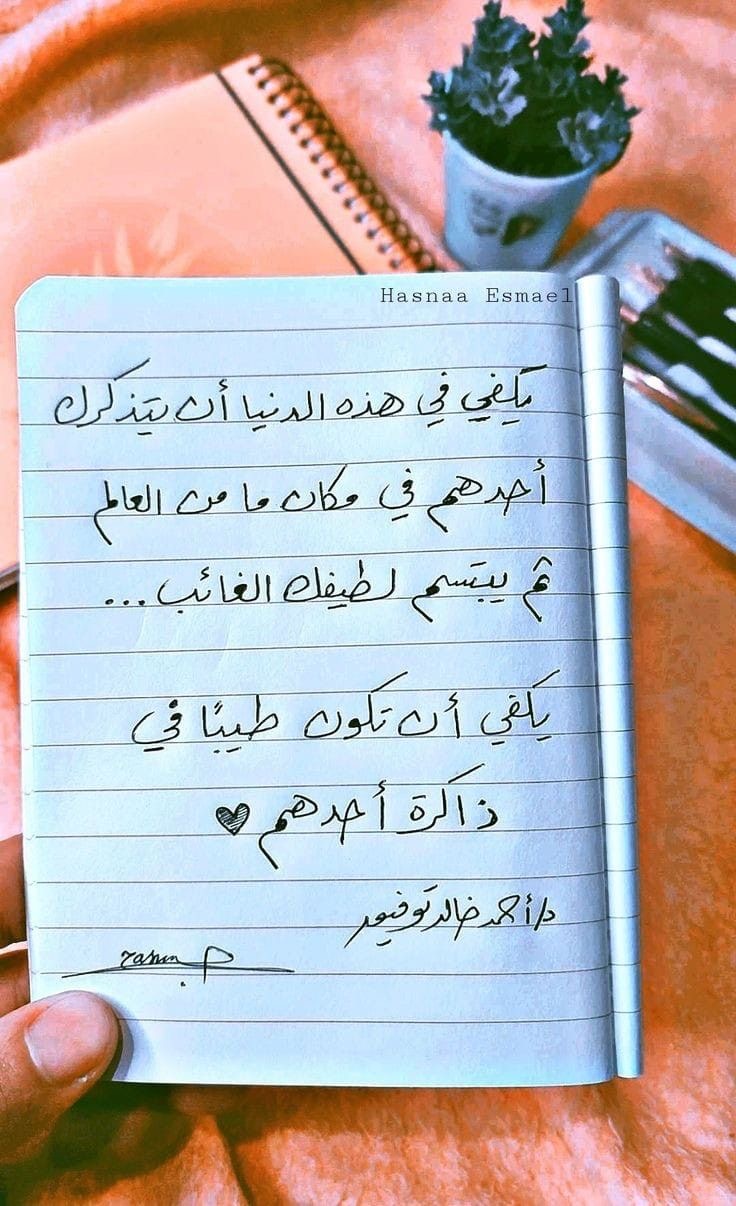 Hasnaa Esmael
يكفي في هذه الدنيا أن يتذكرك
أحدهم في مكان ما من العالم
ثم يبتسم لطيفك الغائب...
يكفي أن تكون طيبًا في
ذاكرة أحدهم ♥
د/أحمد خالد توفيق